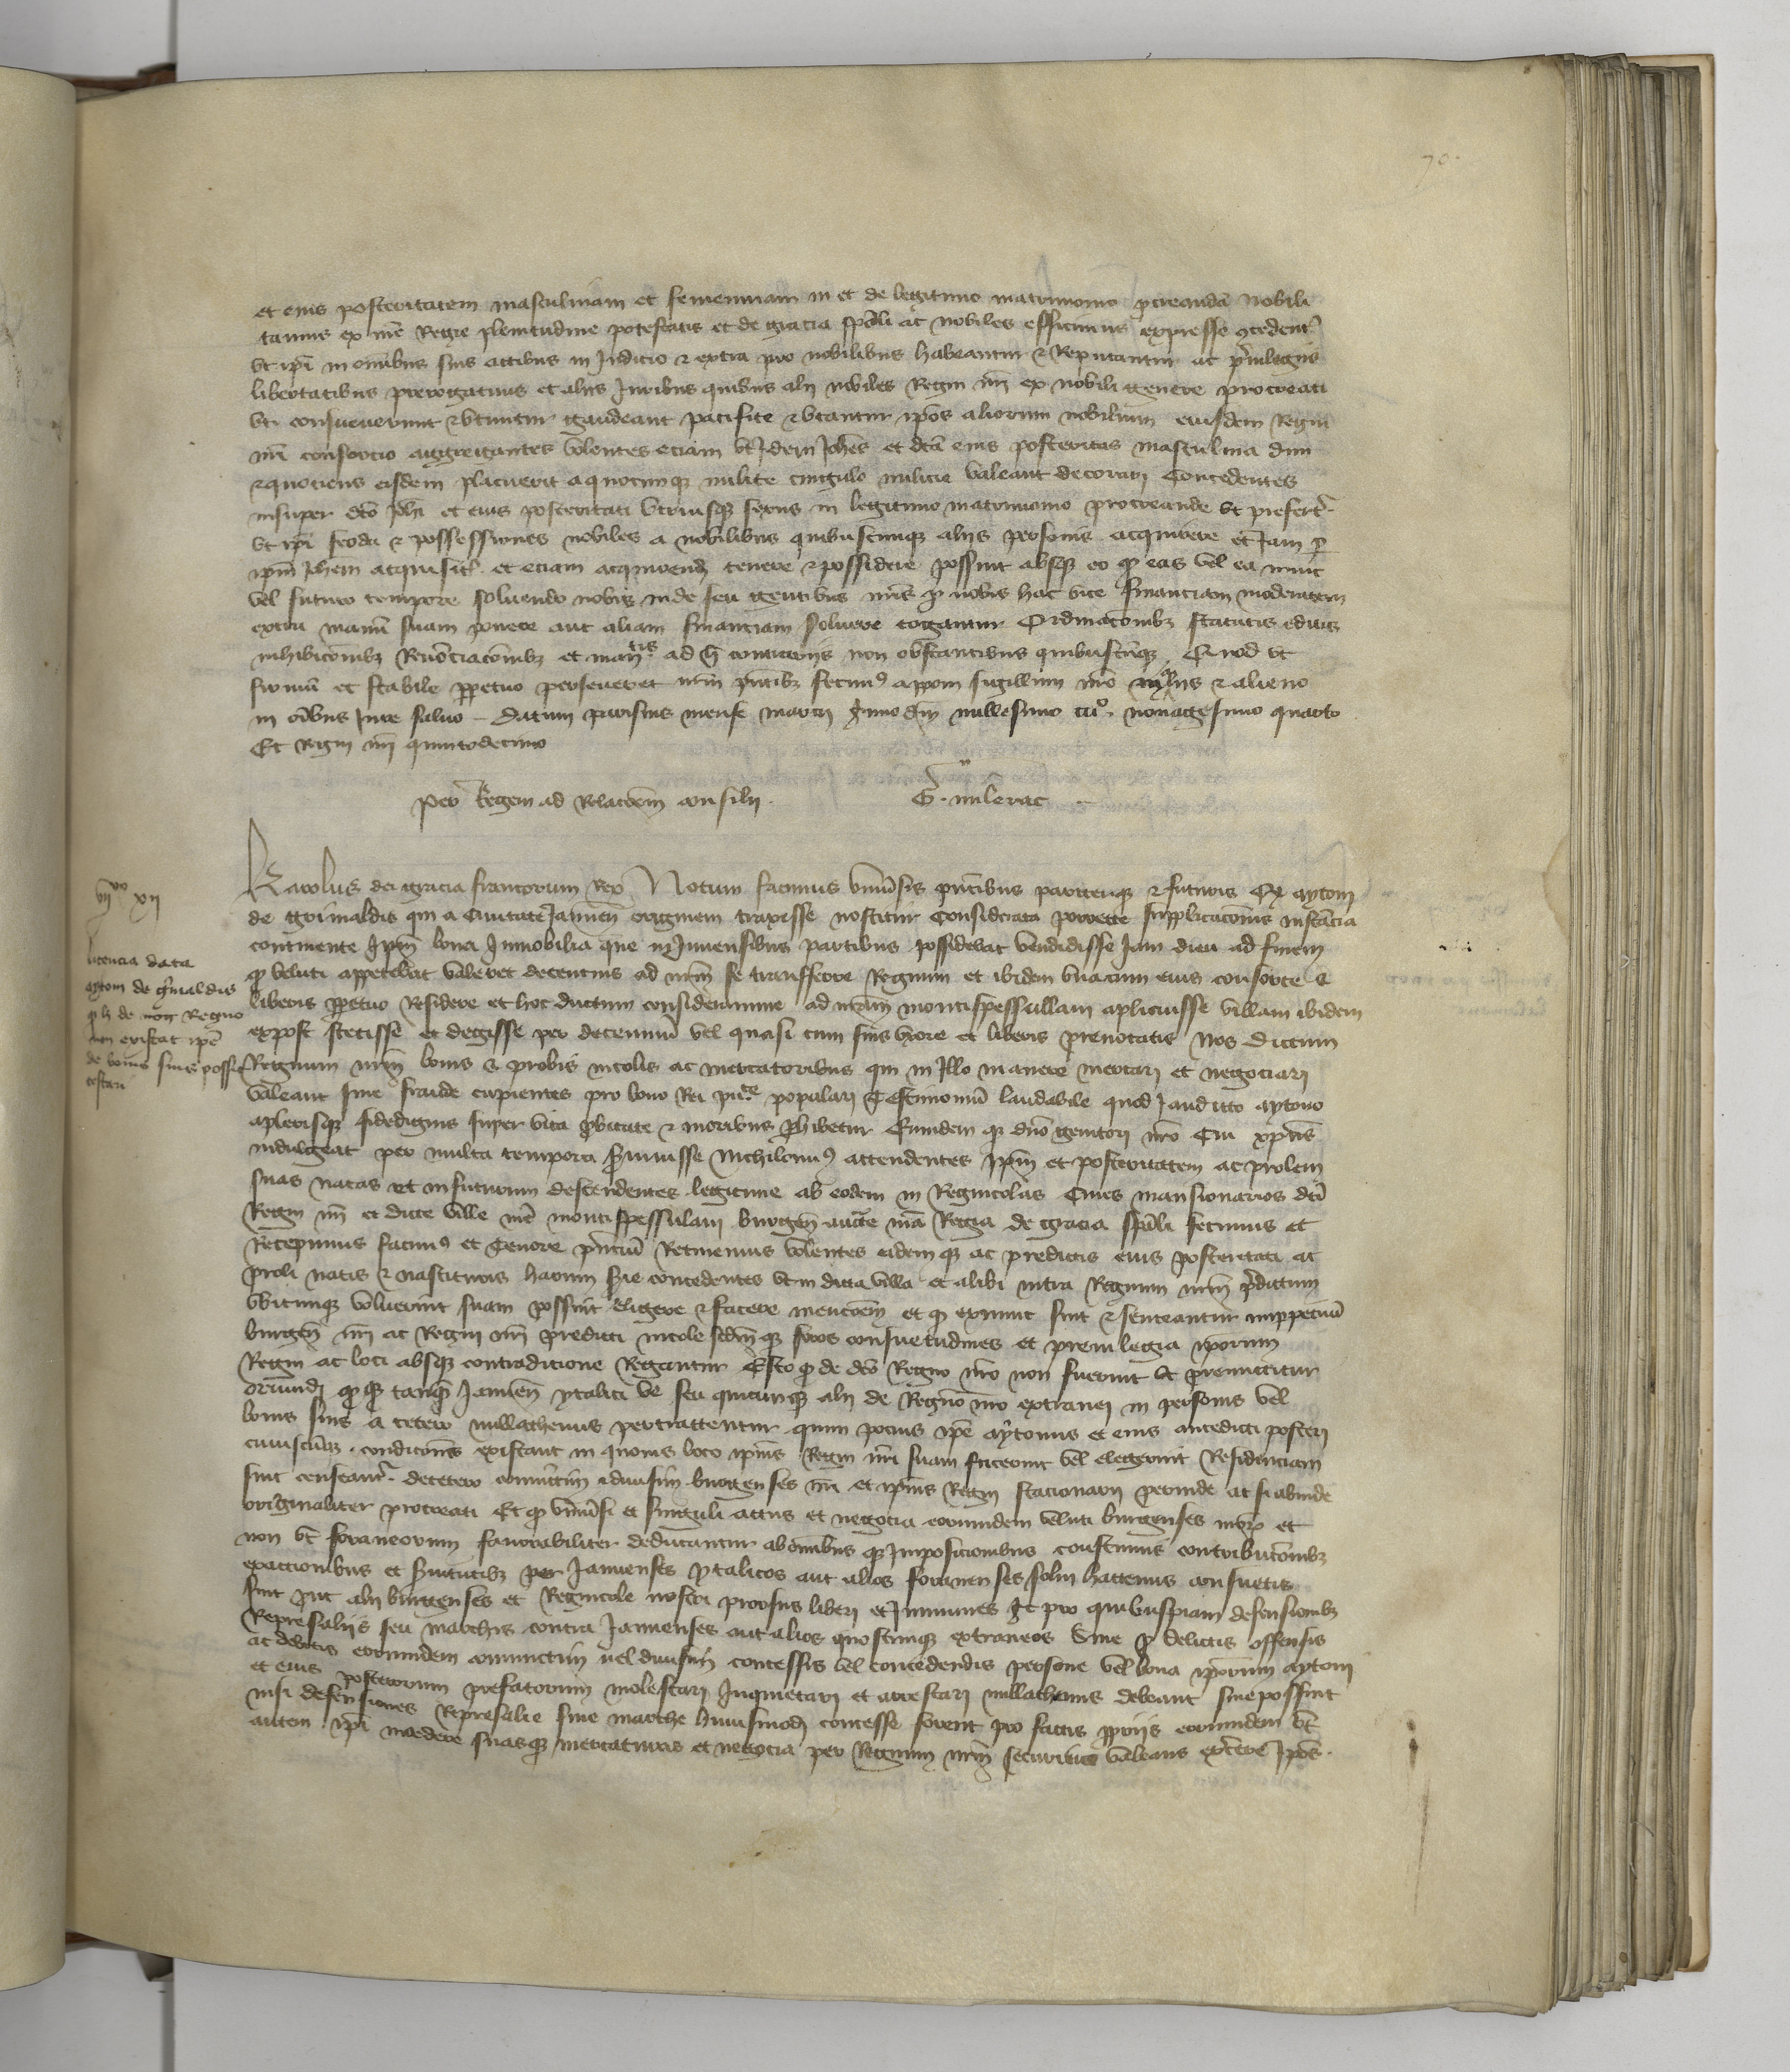 70.
et eius posteritatem masculinam et femeninam in et de legitimo matrimonio pcreandā nobili
tamus ex nrē Regie plenitudine potestatis et de gracia spāli ac nobiles efficimus expresse ꝯcedent̄
vt ip̄i in omībus suis actibus in Judicio & extra pro nobilibus habeantur & Reputantur ac p̄uilegiis
libertatibus prerogatiuis et aliis Juribus quibus alii nobiles Regni nr̄i ex nobili genere procreati
vti consueuerunt & vtuntur gaudeant pacifice & vtantur ip̄os aliorum nobilium eiusdem Regni
nr̄i consorcio aggregantes volentes eciam vt Idem Joh̄es et dc̄a eius posteritas masculina dum
& quociens eisdem placuerit a quocunqꝫ milite cingulo milicie valeant decorari Concedentes
insuper dc̄o Joh̄i et eius posteritati vtriusqꝫ sexus in legitimo matrimonio procreande vt prefert̄
vt ip̄i feoda & possessiones nobiles a nobilibus quibuscunqꝫ aliis personis acquirere et Jam p̱
ip̄m Joh̄em acquisit̄ et eciam acquirend tenere & possidere possint absqꝫ eo qꝫ eas vel ea nunc
vel futuro tempore soluendo nobis inde seu gentibus nr̄is p̱ nobis hac vice financiam moderatam
extra manū suam ponere aut aliam financiam soluere cogantur Ordinacōnibꝫ statutis edictis
inhibicōnibꝫ Reuocacōnibꝫ et mandatis ad h̄ contrariis non obstantibus quibuscūqꝫ Quod vt
firmū et stabile ꝑpetuo perseueret nr̄m p̄ntibꝫ fecimꝰ apponi sigillum nr̄o in aliis & alieno
in oībus Jure saluo – Datum parisius mense marcii Anno dn̄i millesimo cccº. nonagesimo quarto
Et Regni nr̄i quintodecimo
Per Regem ad Relacōem consilii. G. milerac
Karolus dei gracia francorum Rex Notum facimus vniu͂sis p̄ntibus pariterqꝫ & futuris Qꝫ aytoni
de grimaldis qui a Ciuitate Januen̄ originem traxisse noscitur Considerata porrecte supplicacōnis instācia
continente Ip̄m bona Inmobilia que in Januensibus partibus possidebat vendidisse Jam diu ad finem
qꝫ veluti appetebat valeret decentius ad nr̄m se transferre Regnum et ibidem vnacum eius consorte &
liberis ꝑpetuo Residere et hoc ductum consideramine ad nr̄am montispessullani aplicuisse villam ibidem
expost stetisse et degisse per decenniū vel quasi cum suis vxore et liberis prenotatis Nos Dictum
Regnum nr̄m bonis & probis incolis ac mercatoribus qui in Illo manere mercari et negociari
valeant sine fraude cupientes pro bono Rei pub̄ce populari Testimoniū laudabile quod Jamdicto aytono
a plerisqꝫ fidedignis super vita ꝓbitate & moribus ꝑhibetur Eumdem qꝫ dn̄o genitori nr̄o Cui xp̄us
indulgeat per multa tempora s̄uiuisse Nichilominꝰ attendentes Ip̄m et posteritatem ac prolem
suas natas et in futurum descendentes legitime ab eodem in Regnicolas Ciues mansionarios dc̄i
Regni nr̄i et dicte ville nr̄e montispessulani burgen̄ auct̄te nr̄a Regia de gracia spāli fecimus et
Recepimus facimꝰ et Tenore p̄nciū Retinemus volentes eidemqꝫ ac predictis eius posteritati ac
proli natis & nascituris harum s̄ie concedentes vt in dicta villa et alibi intra Regnum nr̄m p̄dictum
vbicunqꝫ voluerint suam possint eligere & facere mencōem et qꝫ exnunc sint & censeantur inppetuū
burgen̄ nr̄i ac Regni nr̄i predicti incole scdm̄qꝫ foros consuetudines et preuilegia ip̄orum
Regni ac loci absqꝫ contradictione Regantur Esto qꝫ de dc̄o Regno nr̄o non fuerint vt premittitur
oriundi qꝫqꝫ tanqꝫ Januen̄ ytalici ve seu quicunqꝫ alii de Regno nr̄o extranei in personis vel
bonis suis a cetero nullathenus pertractentur quin pocius ip̄e aytonus et eius antedicti posteri
cuiuscūqꝫ condicōnis existant in quouis loco ip̄ius Regni nr̄i suam fecerint vel elegerint Residenciam
sint censeant̄ decetero coniunctim & diuisim burgenses nr̄i et ip̄ius Regni stacionarii perinde ac si abinde
originaliter procreati Et qꝫ vniu͂si et singuli actus et negocia eorumdem veluti burgenses nr̄oꝝ et
non vt foraneorum fauorabiliter deducantur ab oīnibus qꝫ Imposicionibus coustumis contribucōnibꝫ
exaccionibus et s̄uitutibꝫ per Januenses ytalicos aut alios foranenses solui hactenus consuetis
sint put alii burgenses et Regnicole nostri prorsus liberi et Inmunes Ac pro quibuspiam defensionibꝫ
Represaliis seu marchis contra Januenses aut alios quoscunqꝫ extraneos siue p̱ delictis offensis
ac debitis eorumdem coniunctim uel diuisim concessis vel concedendis persone vel bona ip̄orum aytoni
et eius posterorum prefatorum molestari Inquietari et arrestari nullathenus debeant siue possint
nisi defensiones Represalie siue marche huiusmodi concesse forent pro factis ꝓpriis eorumdem vt
autem ip̄i mercedere suasqꝫ mercaturas et negocia per Regnum nr̄m securius valeans exercere Ip̄os.
vijˣˣ xij
licencia data
aytoni de g̃maldis
qꝫ lꝫ de non Regno
non existat ip̄e
de bonis suis possit
testari